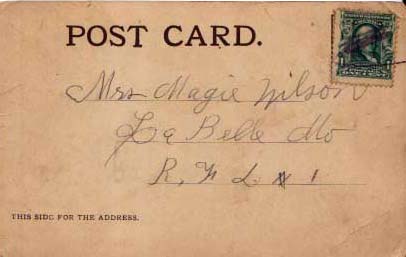 POST CARD.
Mrs Magie Wilson
La Belle Mo
R, F D # 1
THIS SIDE FOR THE ADDRESS.